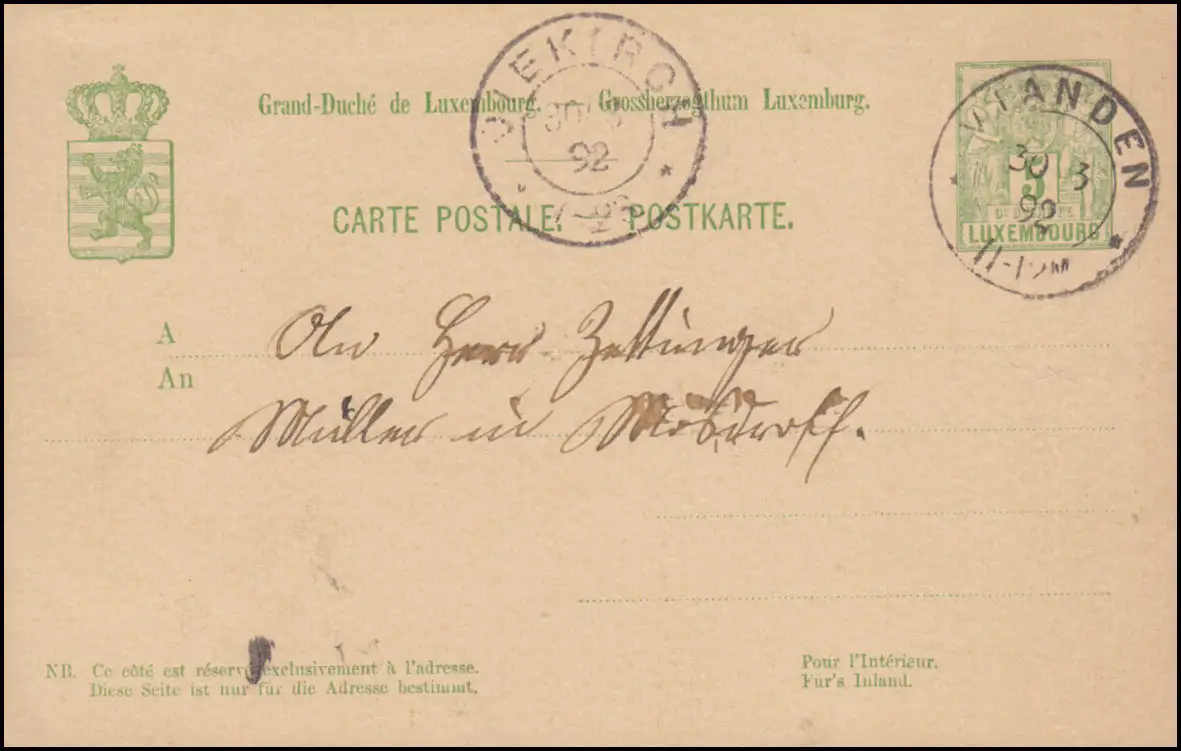 Grand-Duché de Luxembourg. Grossherzogthum Luxemburg.
DIEKIRCH
30 3
92
VIANDEN
30 3
92
5
LUXEMBOURG
CARTE POSTALE. POSTKARTE.
A
An
An Herr Zettinger
Müller in Mösdroff.
NB. Ce côté est réservé exclusivement à l'adresse.
Diese Seite ist nur für die Adresse bestimmt.
Pour l'Intérieur.
Für's Inland.